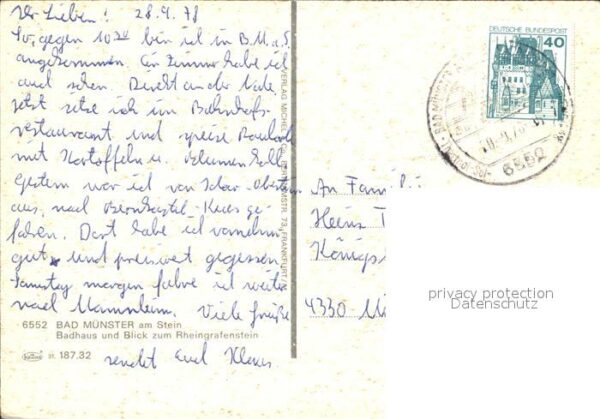 Ihr Lieben! 28.9.78
So, gegen 10 bin ich in B.M.a.S.
angekommen. Ein Zimmer habe ich
auch schon. Direkt an der Nahe.
Jetzt sitze ich im Bahnhofs-
restaurant und speise
mit Kartoffeln u.
Gestern war ich von Idar-Oberstein
aus, nach Bernkastel-Kues ge-
fahren. Dort habe ich vornehm
gut und preiswert gegessen.
Samstag morgen fahre ich weiter
nach Mannheim. Viele Grüße
sendet Euch Klaus
6552 BAD MÜNSTER am Stein
Badhaus und Blick zum Rheingrafenstein
187.32
VERLAG MICHEL
73, FRANKFURT
DEUTSCHE BUNDESPOST
40
BAD MÜNSTER
6552
An Familie
Heinz T
Königs
4330 Mü
privacy protection
Datenschutz